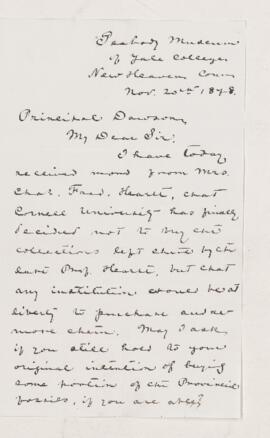 Peabody Museum
of Yale College
New Haven Conn
Nov. 20th 1878.
Principal Dawson,
My Dear Sir:
I have today
received word from Mrs.
Chas. Fred. Hartt, that
Cornell University has finally
decided not to buy the
collections left there by the
late Prof. Hartt, but that
any institution would be at
liberty to purchase and re-
move them. May I ask
if you still hold to your
original intention of buying
some portion of the
fossils, if you are able?